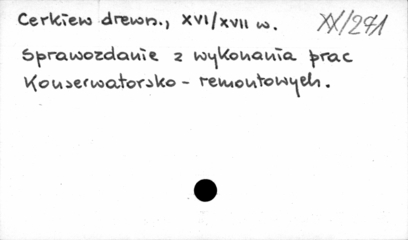 Cerkiew drewn., XVI/XVII w. XX/241
Sprawozdanie z wykonania prac
Konserwatorsko - remontowych.